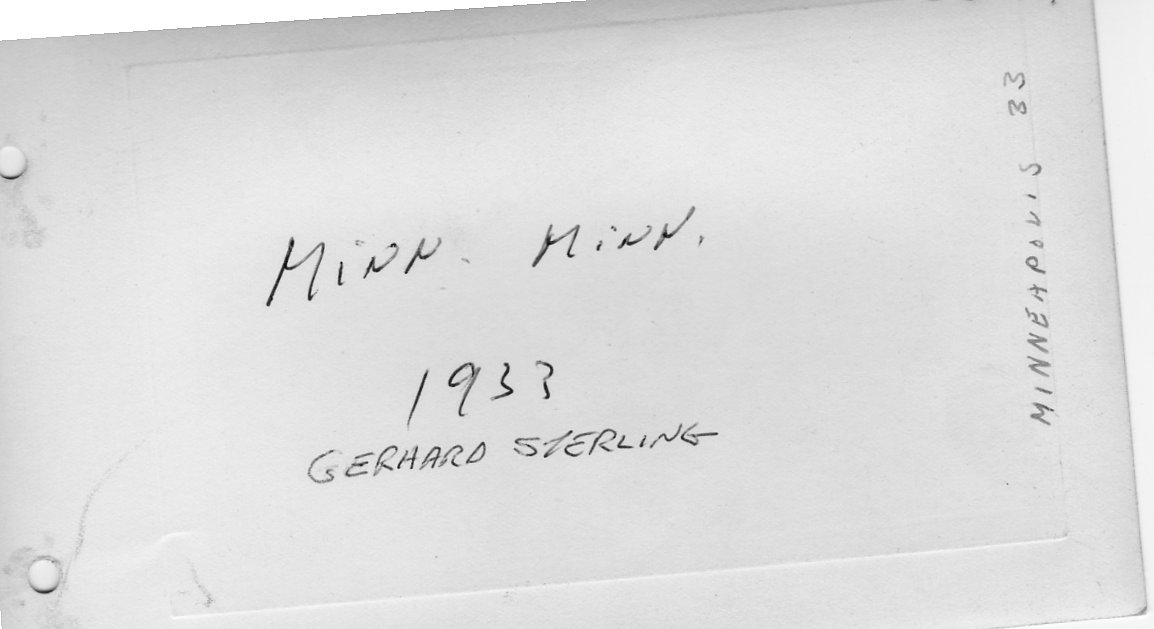 Minn. Minn.
1933
GERHARD STERLING
MINNEAPOLIS 33